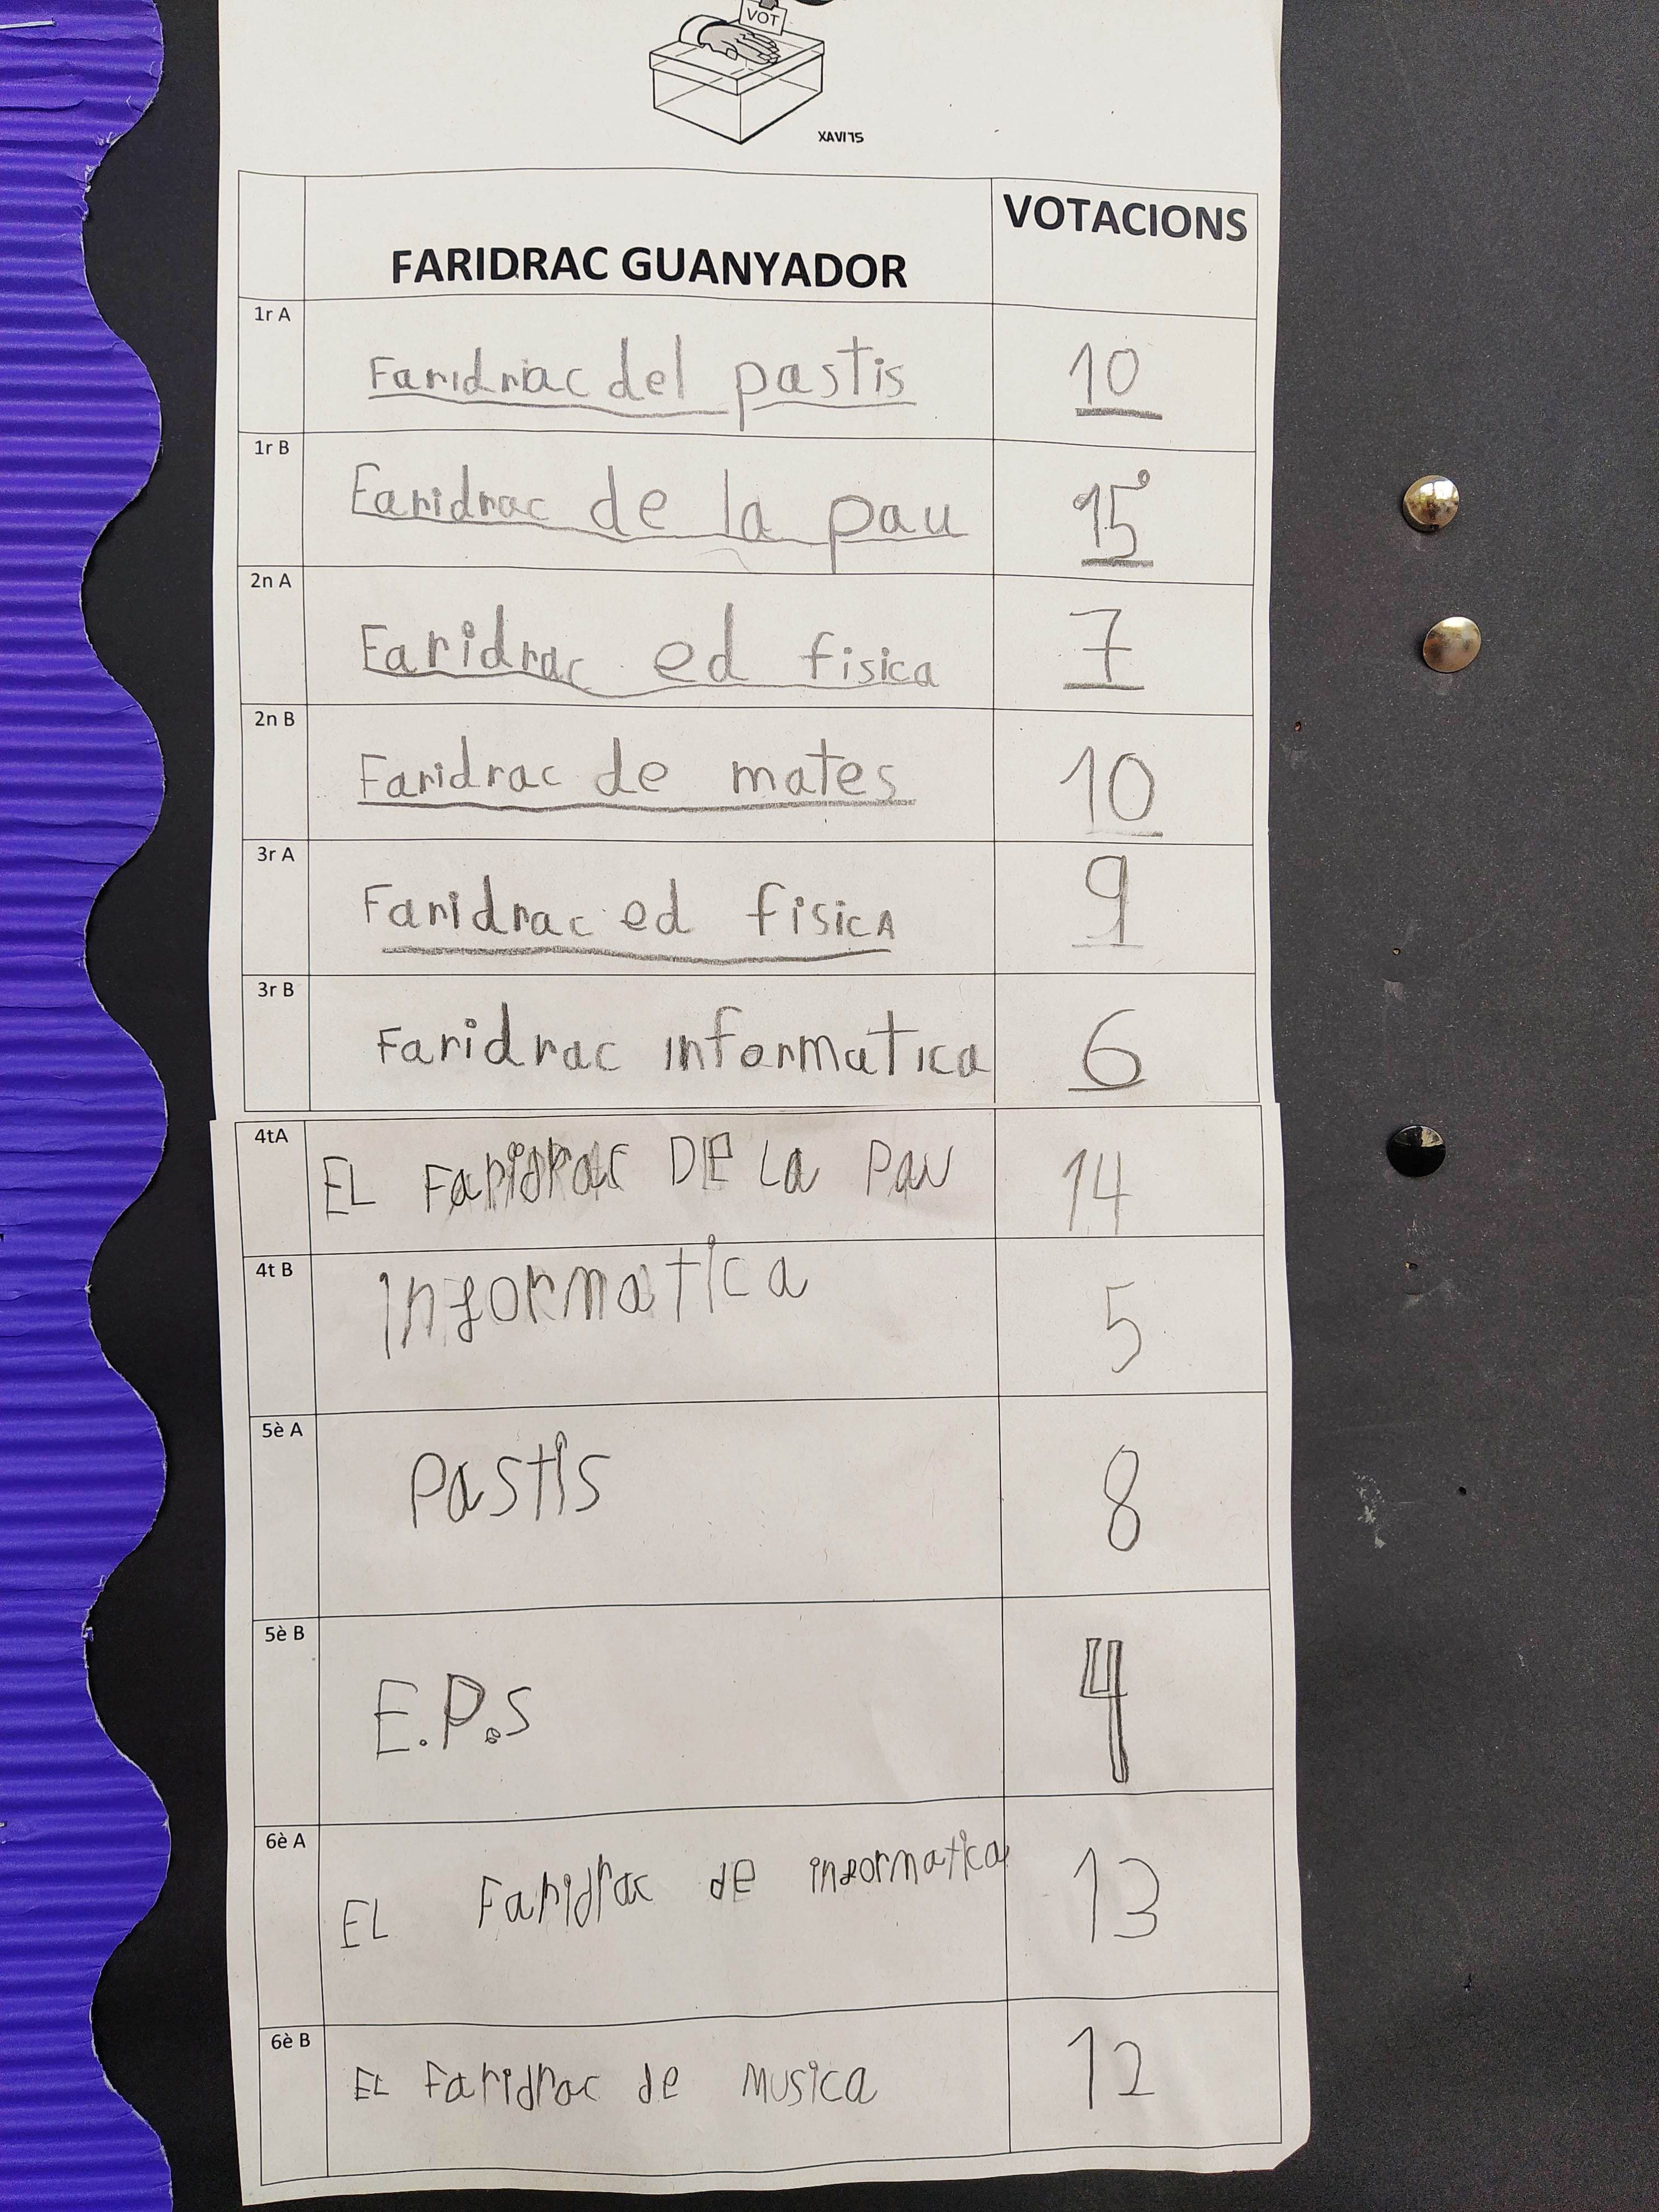 VOT
XAVI15
VOTACIONS
FARIDRAC GUANYADOR
1r A
Faridrac del pastis 10
1r B
Faridrac de la pau 15
2n A
Faridrac ed fisica 7
2n B
Faridrac de mates 10
3r A
Faridrac ed fisicA 9
3r B
Faridrac informatica 6
4tA
EL FaRiDRac DE La Pau 14
4t B
informatica 5
5è A
Pastis 8
5è B
E.P.s 4
6è A
EL Faridrac de informatica 13
6è B
EL Faridrac de Musica 12